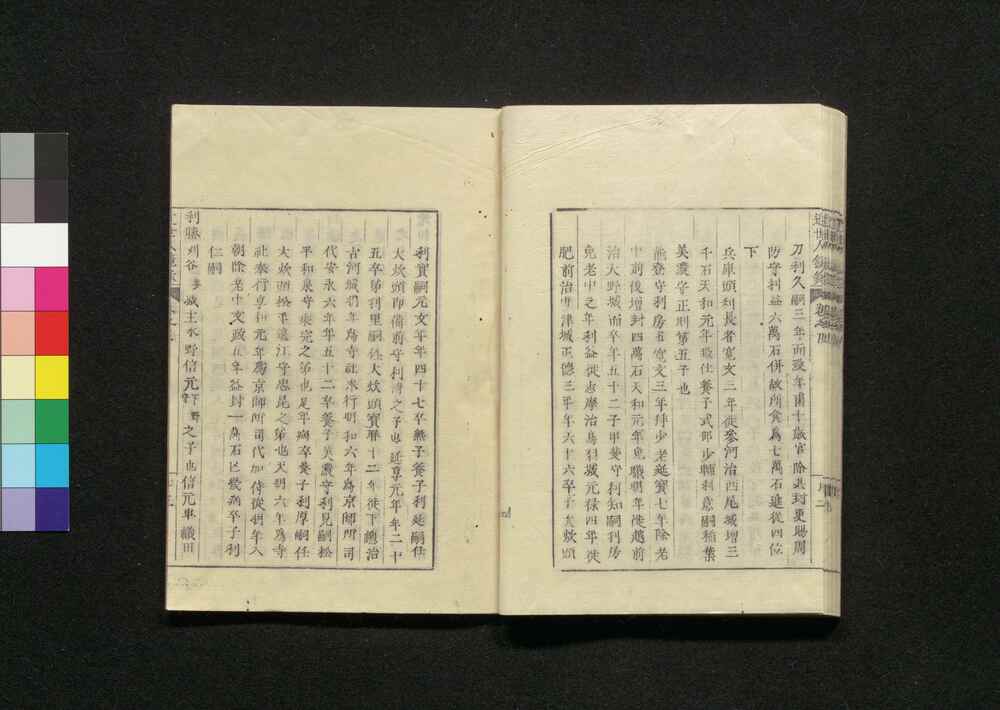 刀利久嗣三年而歿年甫十歲官除其封更賜周
防守利益六萬石併故所食為七萬石進從四位
下
兵庫頭利長者寬文三年徙參河治西尾城增三
千石天和元年致仕養子式部少輔利意嗣稻葉
美濃守正則第五子也
能登守利房者寬文三年拜少老延寶七年除老
中前後增封四萬石天和元年免職明年徙越前
治大野城而卒年五十二子甲斐守利知嗣利房
免老中之年利益徙志摩治鳥羽城元祿四年徙
肥前治唐津城正德三年年六十六卒子大炊頭
利實嗣元文元年年四十七卒無子養子利延嗣任
大炊頭即備前守利清之子也延享元年年二十
五卒弟利里嗣任大炊頭寶曆十二年徙下總治
古河城明年為寺社奉行明和六年為京師所司
代安永六年年五十二卒養子美濃守利見嗣松
平和泉守乘完之弟也是年病卒養子利厚嗣任
大炊頭松平遠江守忠昆之弟也天明六年為寺
社奉行享和元年為京師所司代加侍從明年入
朝除老中文政五年益封一萬石以發病卒子利
仁嗣
利勝刈谷城主水野信元下野守之子也信元事織田